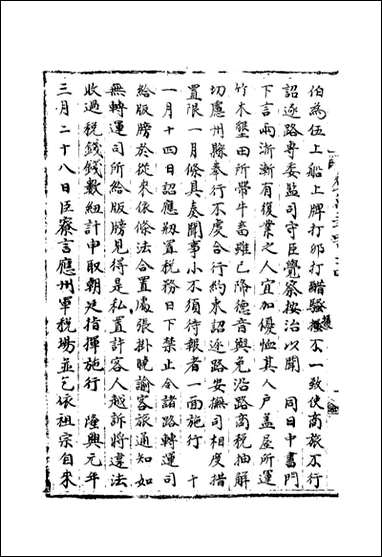 伯為伍上船上牌打卯打瞎騷擾不一致使商旅不行
詔逐路專委監司守臣覺察按治以聞　同日中書門
下言兩淮漸有復業之人宜加優恤其人户蓋屋所運
竹木墾田所帶牛畜雖已降德音與免沿路商税抽解
切慮州縣奉行不虔合行約束詔逐路安撫司相度措
置限一月條具奏聞事小不須待報者一面施行　十
一月十四日詔應刱置税務日下禁止令諸路轉運司
給版牓於從來依條法合置處張掛曉諭客旅通知如
無轉運司所給版牓見得是私置許客人越訴將違法
收過税錢錢數紐計申取朝廷指揮施行　隆興元年
三月二十八日臣寮言應州軍税場並乞依祖宗自來